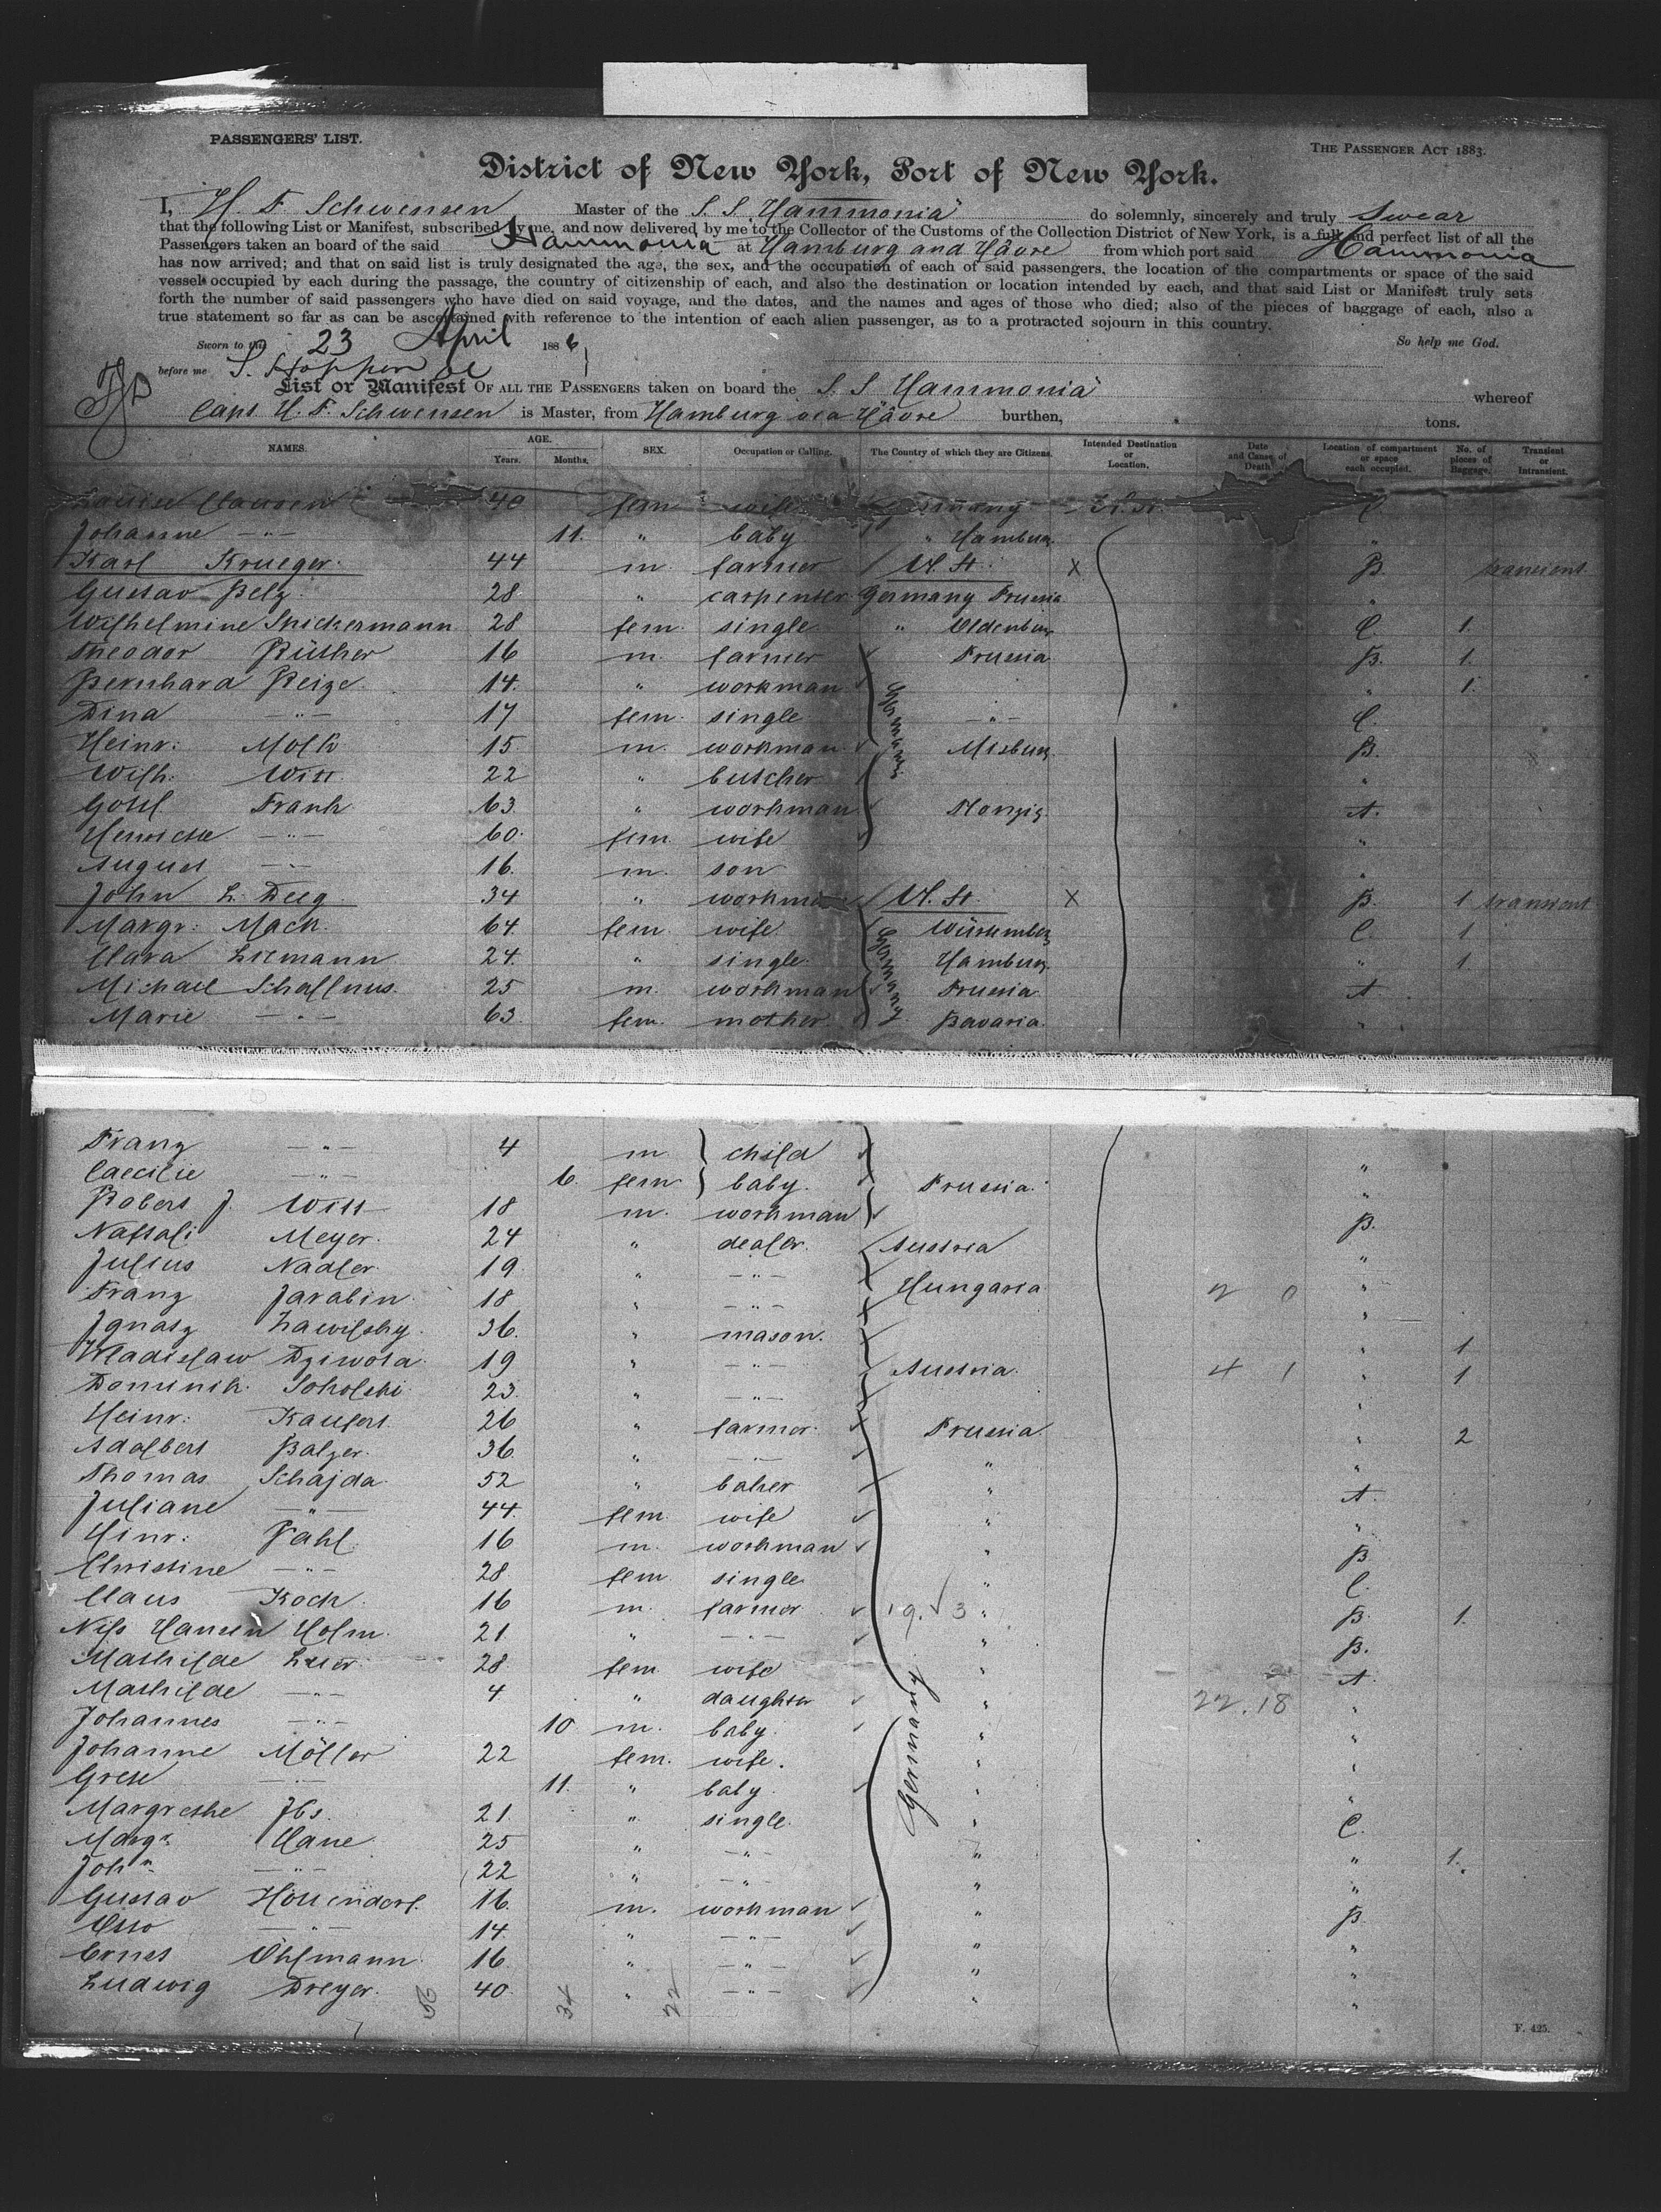 PASSENGERS' LIST.
THE PASSENGER ACT 1883.
District of New York, Port of New York.
I, H. F. Schwensen Master of the S. S. "Hammonia" do solemnly, sincerely and truly swear
that the following List or Manifest, subscribed by me, and now delivered by me to the Collector of the Customs of the Collection District of New York, is a full and perfect list of all the
Passengers taken on board of the said Hammonia at Hamburg and Hâvre from which port said Hammonia
has now arrived; and that on said list is truly designated the age, the sex, and the occupation of each of said passengers, the location of the compartments or space of the said
vessel occupied by each during the passage, the country of citizenship of each, and also the destination or location intended by each, and that said List or Manifest truly sets
forth the number of said passengers who have died on said voyage, and the dates, and the names and ages of those who died; also of the pieces of baggage of each, also a
true statement so far as can be ascertained with reference to the intention of each alien passenger, as to a protracted sojourn in this country.
Sworn to this 23 April 1886 So help me God.
before me S. Hopper
List or Manifest OF ALL THE PASSENGERS taken on board the S. S. Hammonia" whereof
Capt H. F. Schwensen is Master, from Hamburg via Hâvre burthen, tons.
NAMES. AGE. Years. Months. SEX. Occupation or Calling. The Country of which they are Citizens. Intended Destination or Location. Date and Cause of Death. Location of compartment or space each occupied. No. of pieces of Baggage. Transient or Intransient.
Clausen 40 fem wife Germany C
Johanne -"- 11. " baby " Hamburg "
Karl Krueger. 44 m. farmer U. St. X B. transient
Gustav Pelz. 28 " carpenter Germany Prussia "
Wilhelmine Stickermann 28 fem. single " Oldenburg C. 1.
Theodor Rüther 16 m. farmer Prussia B. 1.
Bernhard Reize. 14. " workman " 1.
Dina -"- 17 fem. single -"- C.
Heinr: Molk 15. m. workman. Germany B.
Wilh. Witt 22 " butcher "
Gottl Frank 63. " workman A.
-"- 60. fem. wife "
August -"- 16. m. son "
John L. Deeg 34 " workman U. St. X B. 1 transient
Margr: Mack. 64. fem. wife Württemberg C. 1
Clara 24. " single. Hamburg. " 1.
Michael Schallnus. 25 m. workman Germany Prussia A.
Marie -"- 63. fem. mother. Bavaria. "
Franz -"- 4 m child "
Caecilie -"- 6. fem baby. Prussia. "
Robert J. Witt 18 m. workman B.
Naftali Meyer. 24 " dealer. Austria "
Julius Nadler. 19. " -"- Hungaria "
Franz Jarabin. 18 " -"- "
Ignatz 36. " mason. " 1
Wladislaw Dziwota. 19 " -"- Austria. " 1
Dominik. Sokolski 23. " -"- "
Heinr: Kaufert. 26 " farmer. Prussia " 2
Adalbert Balzer. 36. " -"- " "
Thomas Schajda. 52 " baker " A.
Juliane -"- 44. fem. wife " "
Hinr: Pahl. 16 m. workman " B
Christine -"- 28 fem. single " C.
Claus Koch. 16 m. farmer 19. 3 " B. 1.
Nils Hansen Holm. 21. " -"- " B.
Mathilde 28. fem. wife " A.
Mathilde -"- 4 " daughter " 22.18 "
Johannes -"- 10 m. baby. " "
Johanne Möller 22 fem. wife. " "
Grete -"- 11. " baby. " "
Margrethe Ibs. 21. " single. Germany " C.
Margr. 25 " -"- " " 1.
Joh. -"- 22 " -"- " "
Gustav 16. m. workman " B
Otto -"- 14. " -"- " "
Ernst Ohlmann. 16. " -"- " "
Ludwig Dreyer. 40. " -"- " "
34
F. 425.